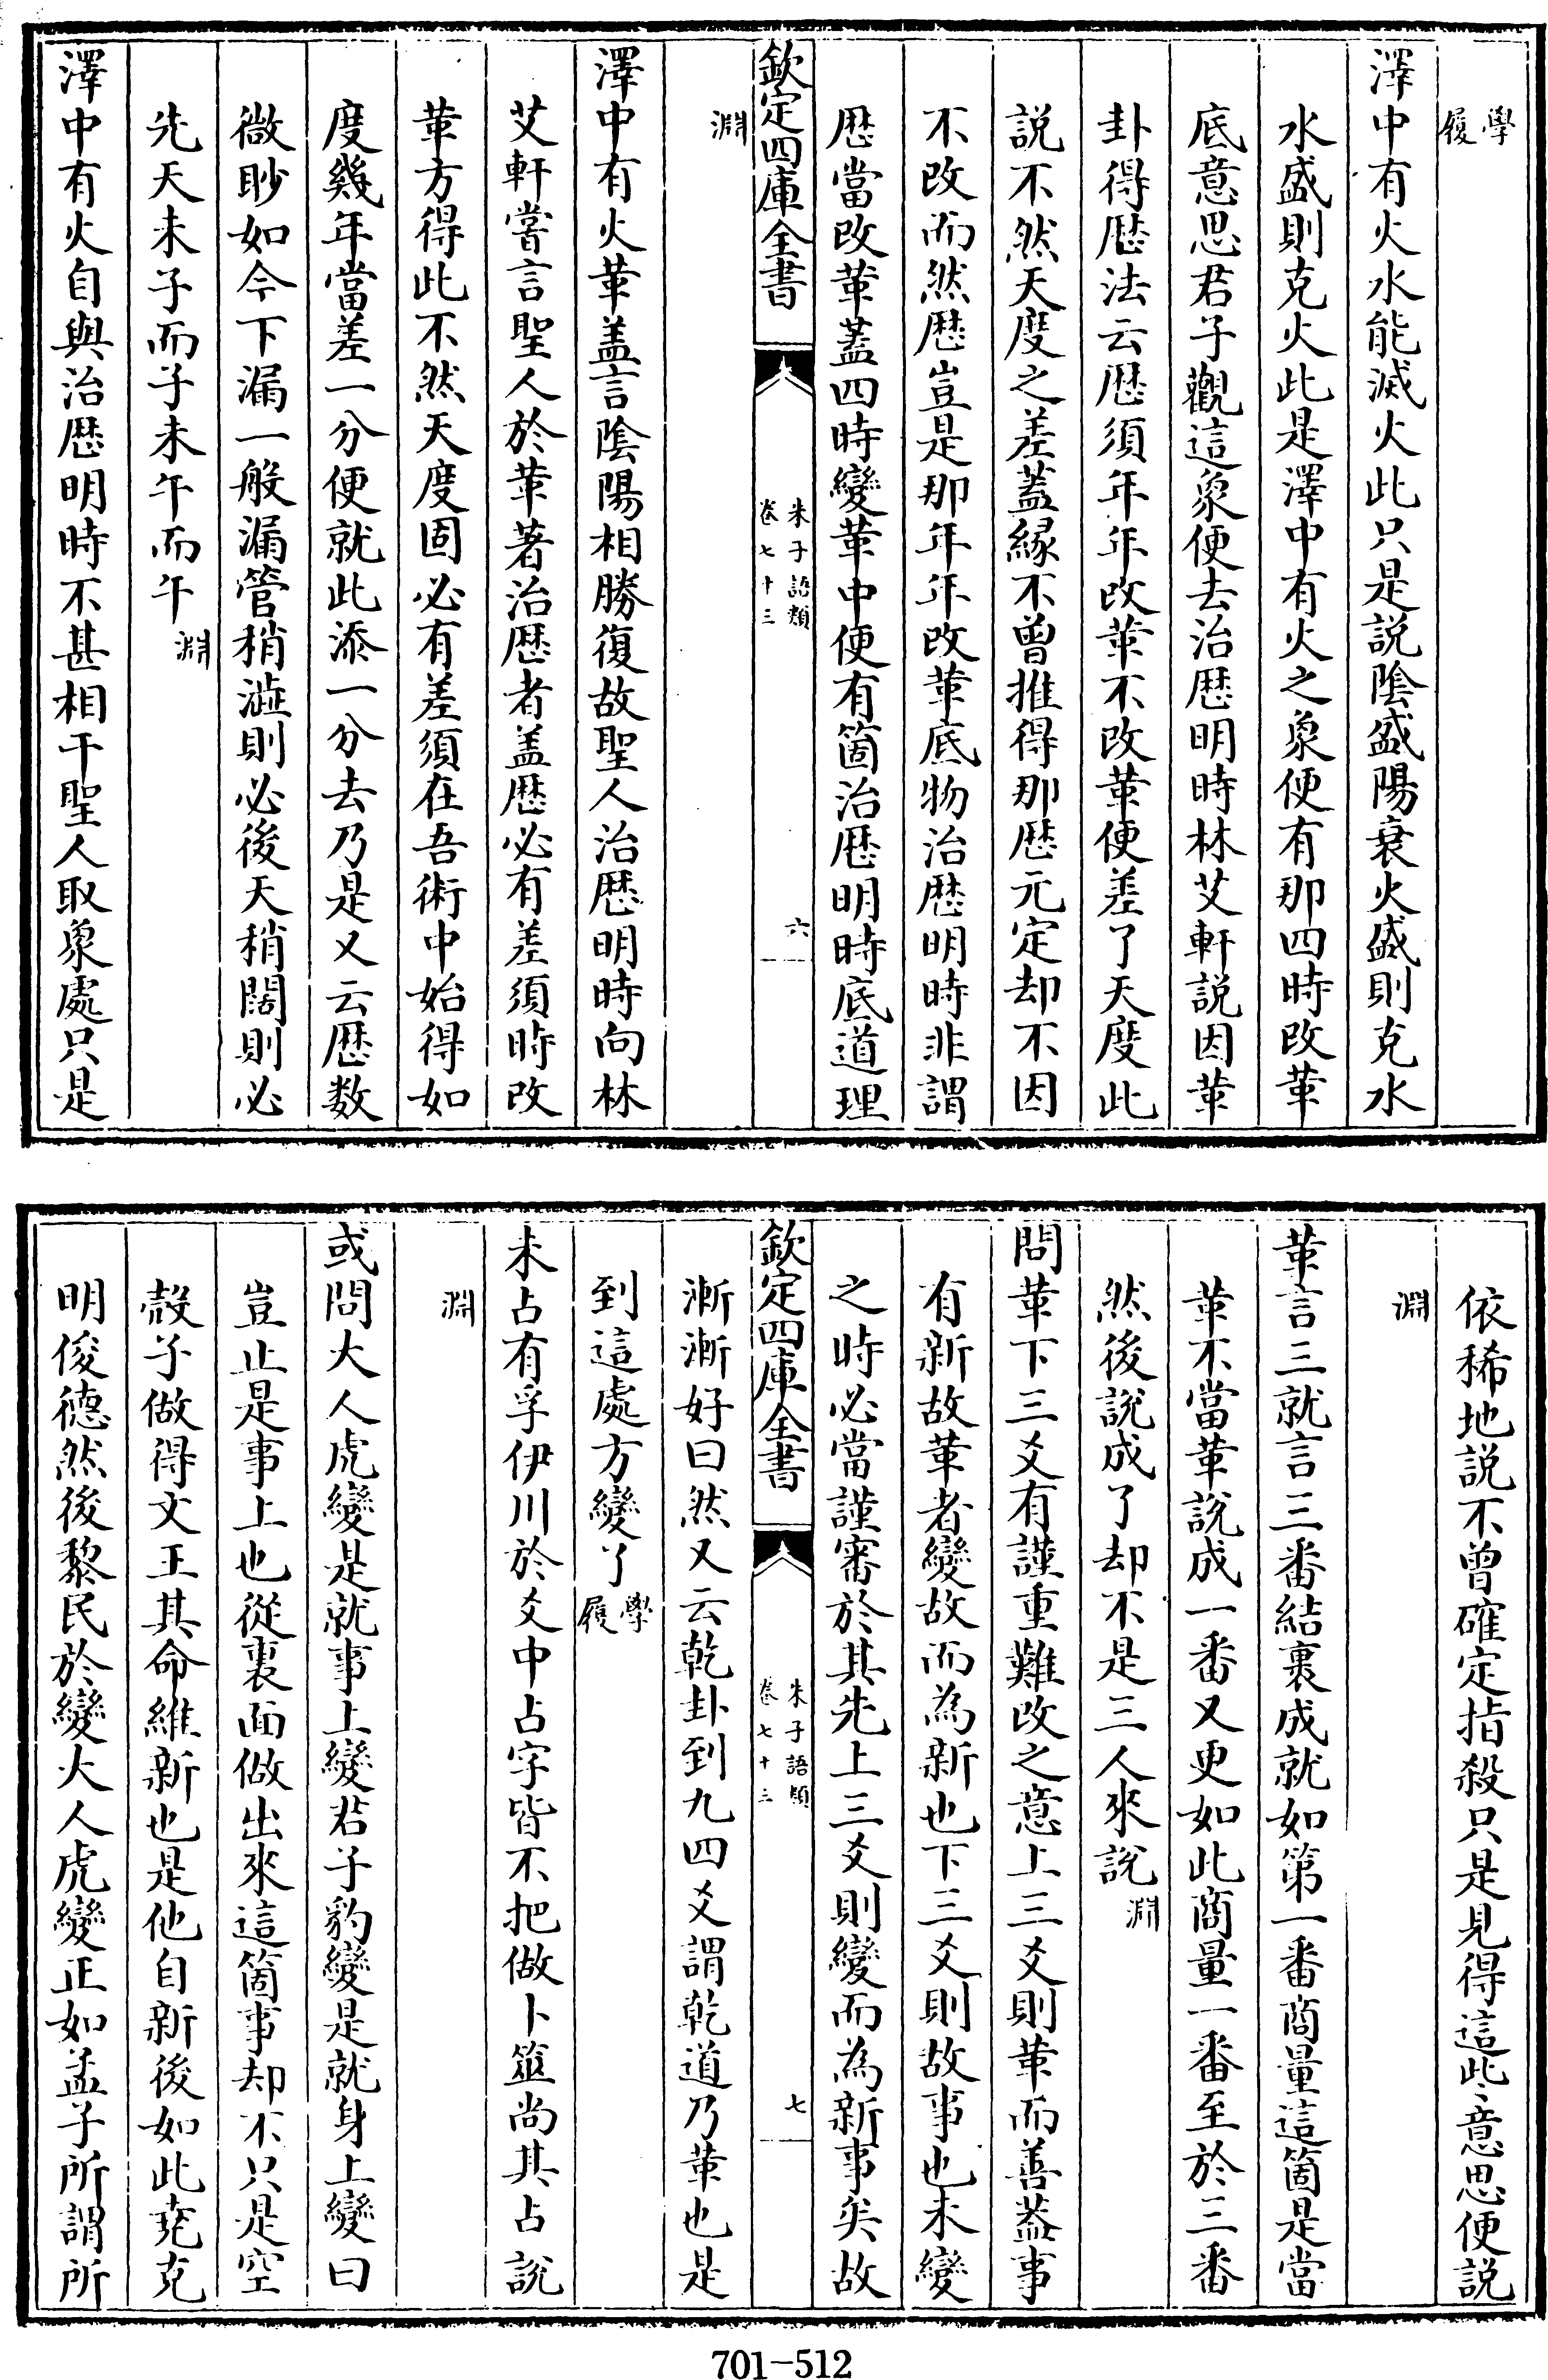 學履
澤中有火水能滅火此只是説隂盛陽衰火盛則克水
水盛則克火此是澤中有火之象便有那四時改革
底意思君子觀這象便去治厯明時林艾軒説因革
卦得厯法云厯須年年改革不改革便差了天度此
説不然天度之差蓋縁不曾推得那厯元定却不因
不改而然厯豈是那年年改革底物治厯明時非謂
厯當改革蓋四時變革中便有箇治厯明時底道理
欽定四庫全書
朱子語類
卷七十三
六
淵
澤中有火革盖言陰陽相勝復故聖人治厯明時向林
艾軒嘗言聖人於革著治厯者盖厯必有差須時改
革方得此不然天度固必有差須在吾術中始得如
度幾年當差一分便就此添一分去乃是又云厯数
微眇如今下漏一般漏管稍澁則必後天稍闊則必
先天未子而子未午而午淵
澤中有火自與治厯明時不甚相干聖人取象處只是
依稀地説不曾確定指殺只是見得這些意思便説
淵
革言三就言三番結裹成就如第一番商量這箇是當
革不當革說成一番又更如此商量一番至於三番
然後說成了却不是三人來說淵
問革下三爻有謹重難改之意上三爻則革而善蓋事
有新故革者變故而為新也下三爻則故事也未變
之時必當謹審於其先上三爻則變而為新事矣故
欽定四庫全書
朱子語類
卷七十三
七
漸漸好曰然又云乾卦到九四爻謂乾道乃革也是
到這處方變了學履
未占有孚伊川於爻中占字皆不把做卜筮尚其占說
淵
或問大人虎變是就事上變君子豹變是就身上變曰
豈止是事上也從裏面做出來這箇事却不只是空
殻子做得文王其命維新也是他自新後如此堯克
明俊德然後黎民於變大人虎變正如孟子所謂所
701-512